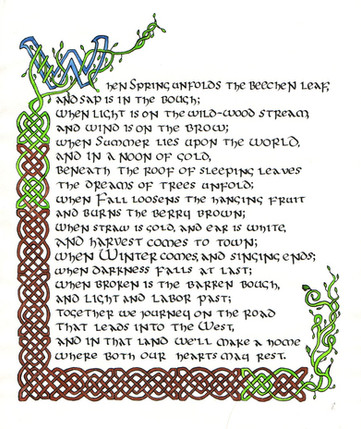 When Spring unfolds the beechen leaf,
and sap is in the bough;
when light is on the wild-wood stream,
and wind is on the brow;
when Summer lies upon the world,
and in a noon of gold,
beneath the roof of sleeping leaves
the dreams of trees unfold;
when Fall loosens the hanging fruit
and burns the berry brown;
when straw is gold, and ear is white,
and harvest comes to town;
when Winter comes, and singing ends;
when darkness falls at last;
when broken is the barren bough,
and light and labor past;
together we journey on the road
that leads into the West,
and in that land we'll make a home
where both our hearts may rest.